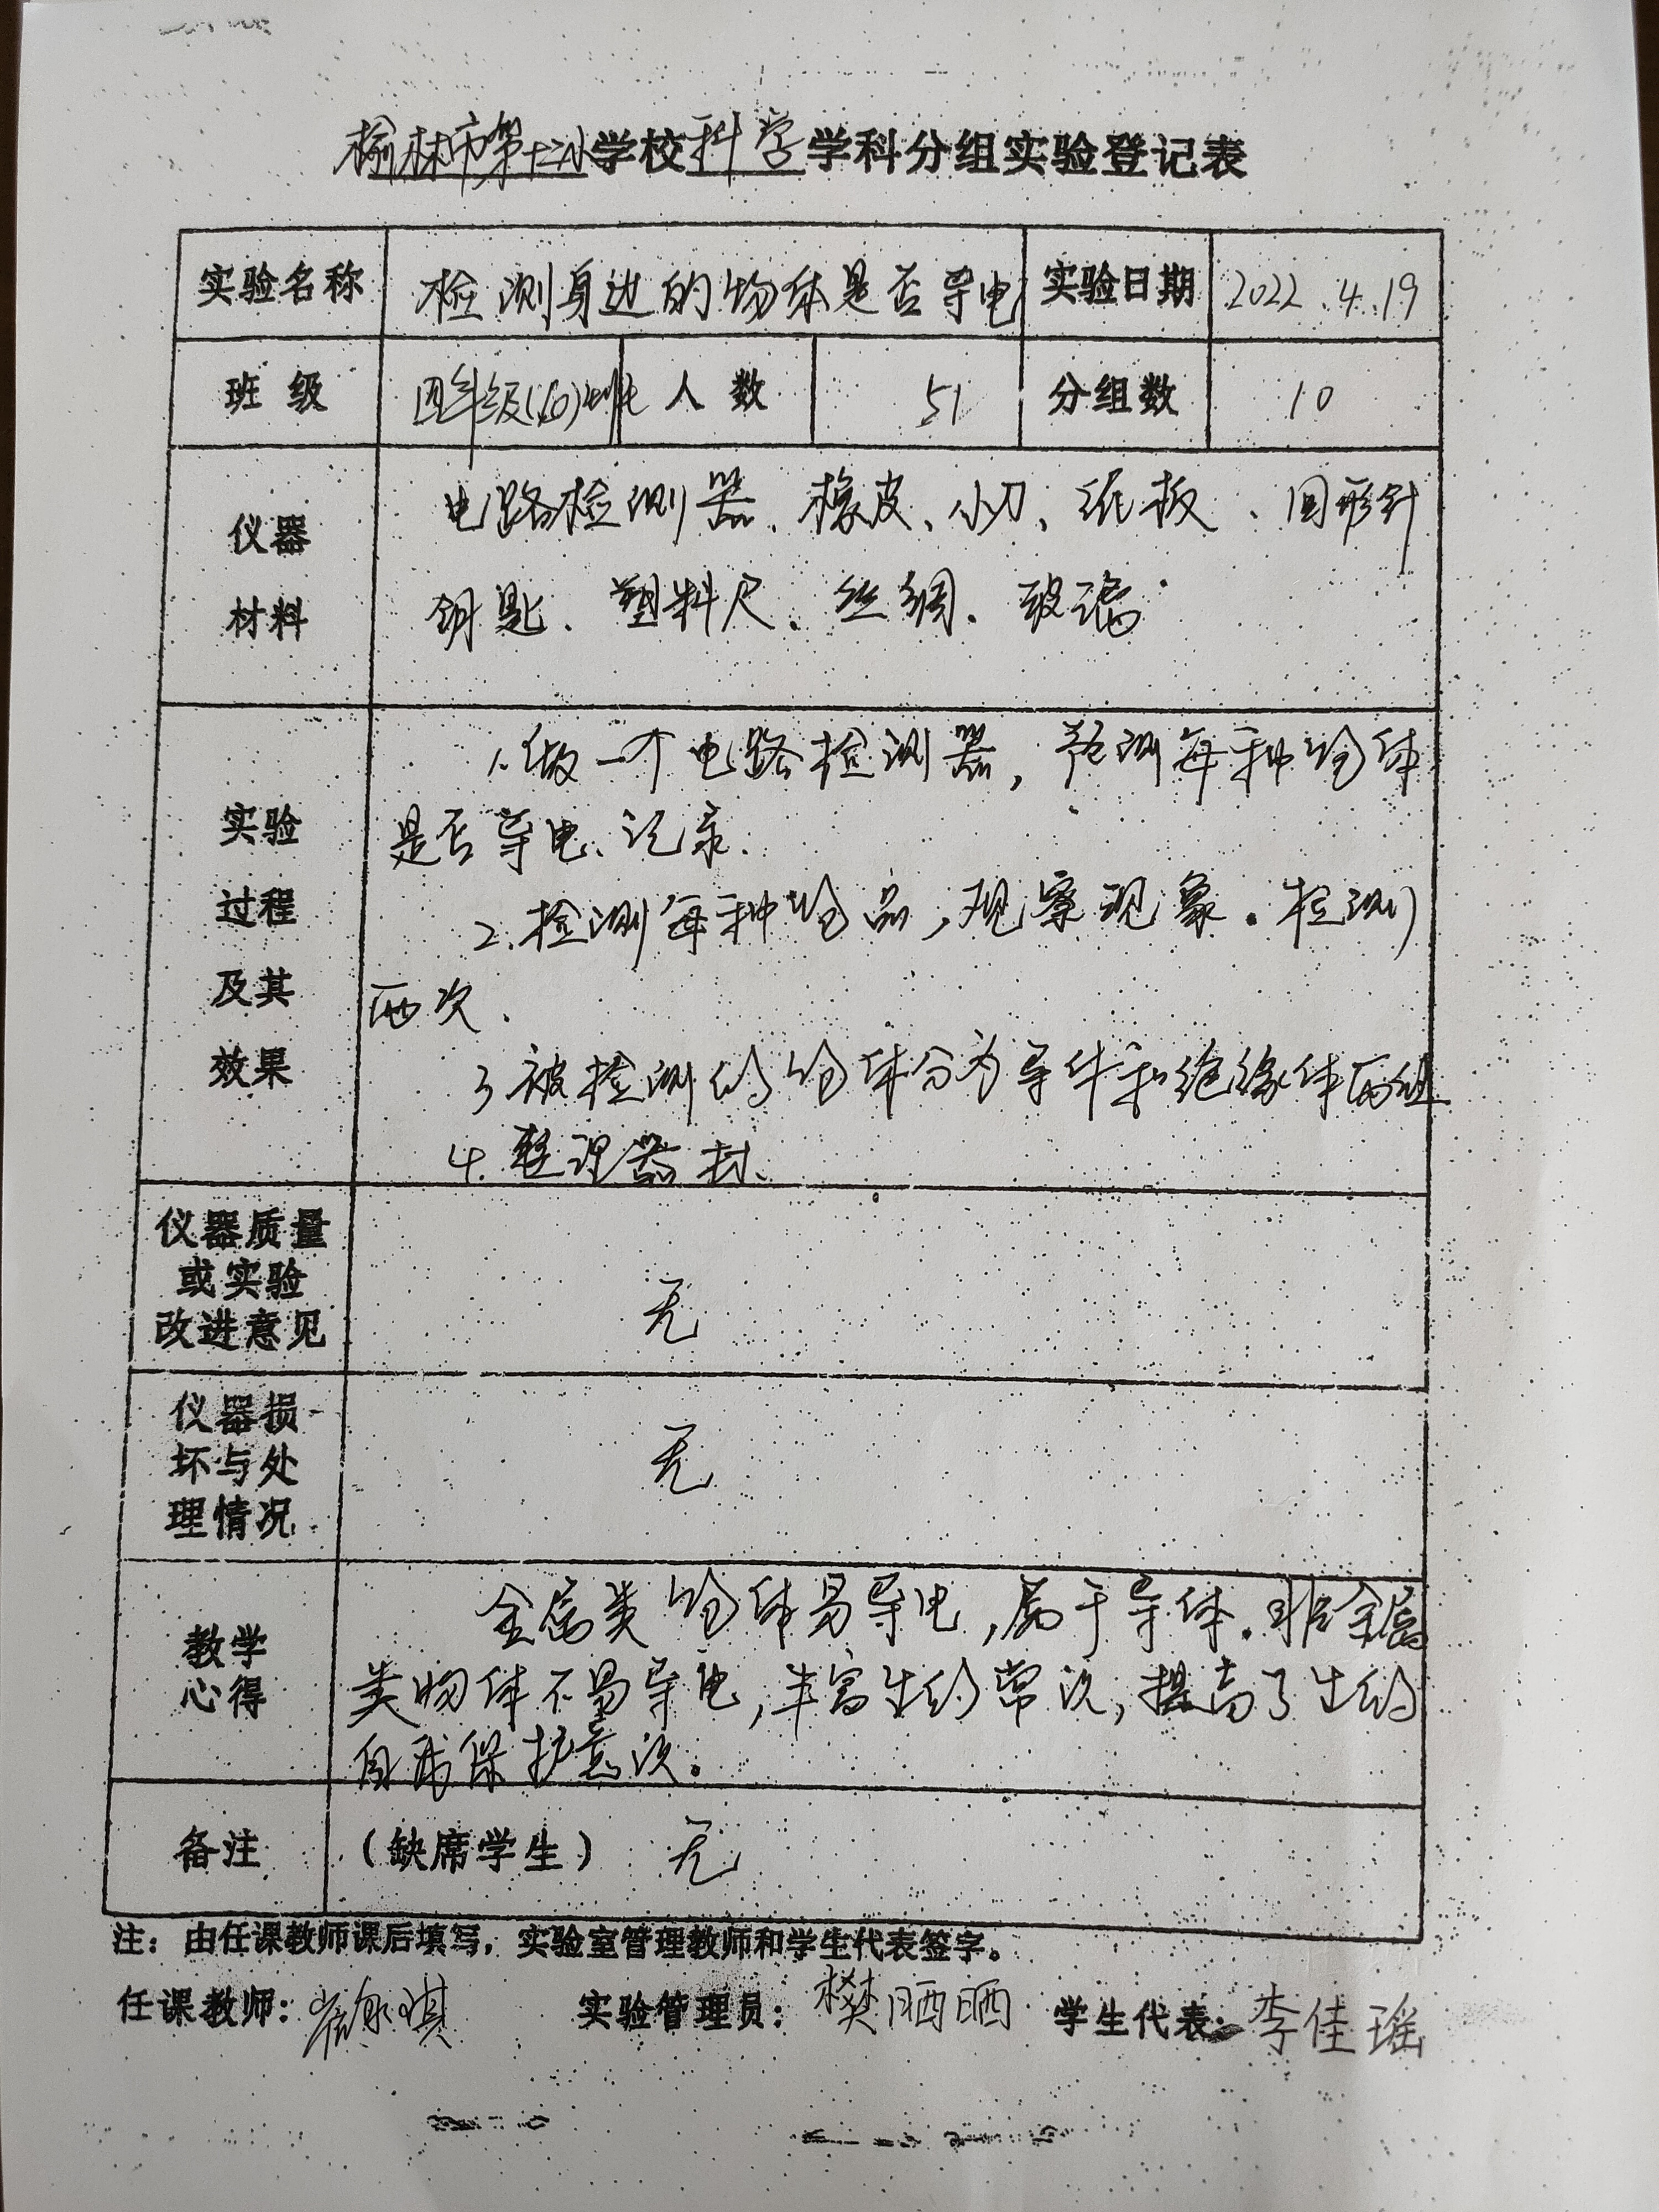 榆林市第十二小学校科学学科分组实验登记表
实验名称 检测身边的物体是否导电 实验日期 2022.4.19
班 级 四年级(10)班 人 数 51 分组数 10
仪器
材料
电路检测器、橡皮、小刀、纸板、回形针
钥匙、塑料尺、丝绸、玻璃.
实验
过程
及其
效果
1.做一个电路检测器,预测每种物体
是否导电、记录.
2.检测每种物品,观察现象.检测
两次.
3 被检测的物体分为导体和绝缘体两组
4.整理器材.
仪器质量
或实验
改进意见
无
仪器损
坏与处
理情况
无
教学
心得
金属类物体易导电,属于导体.非金属
类物体不易导电,丰富生的常识,提高了生的
自我保护意识。
备注 (缺席学生) 无
注:由任课教师课后填写,实验室管理教师和学生代表签字。
任课教师: 实验管理员:樊晒晒 学生代表:李佳瑶